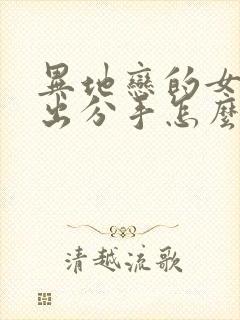 異地戀的女
出分手怎麼
清越流歌